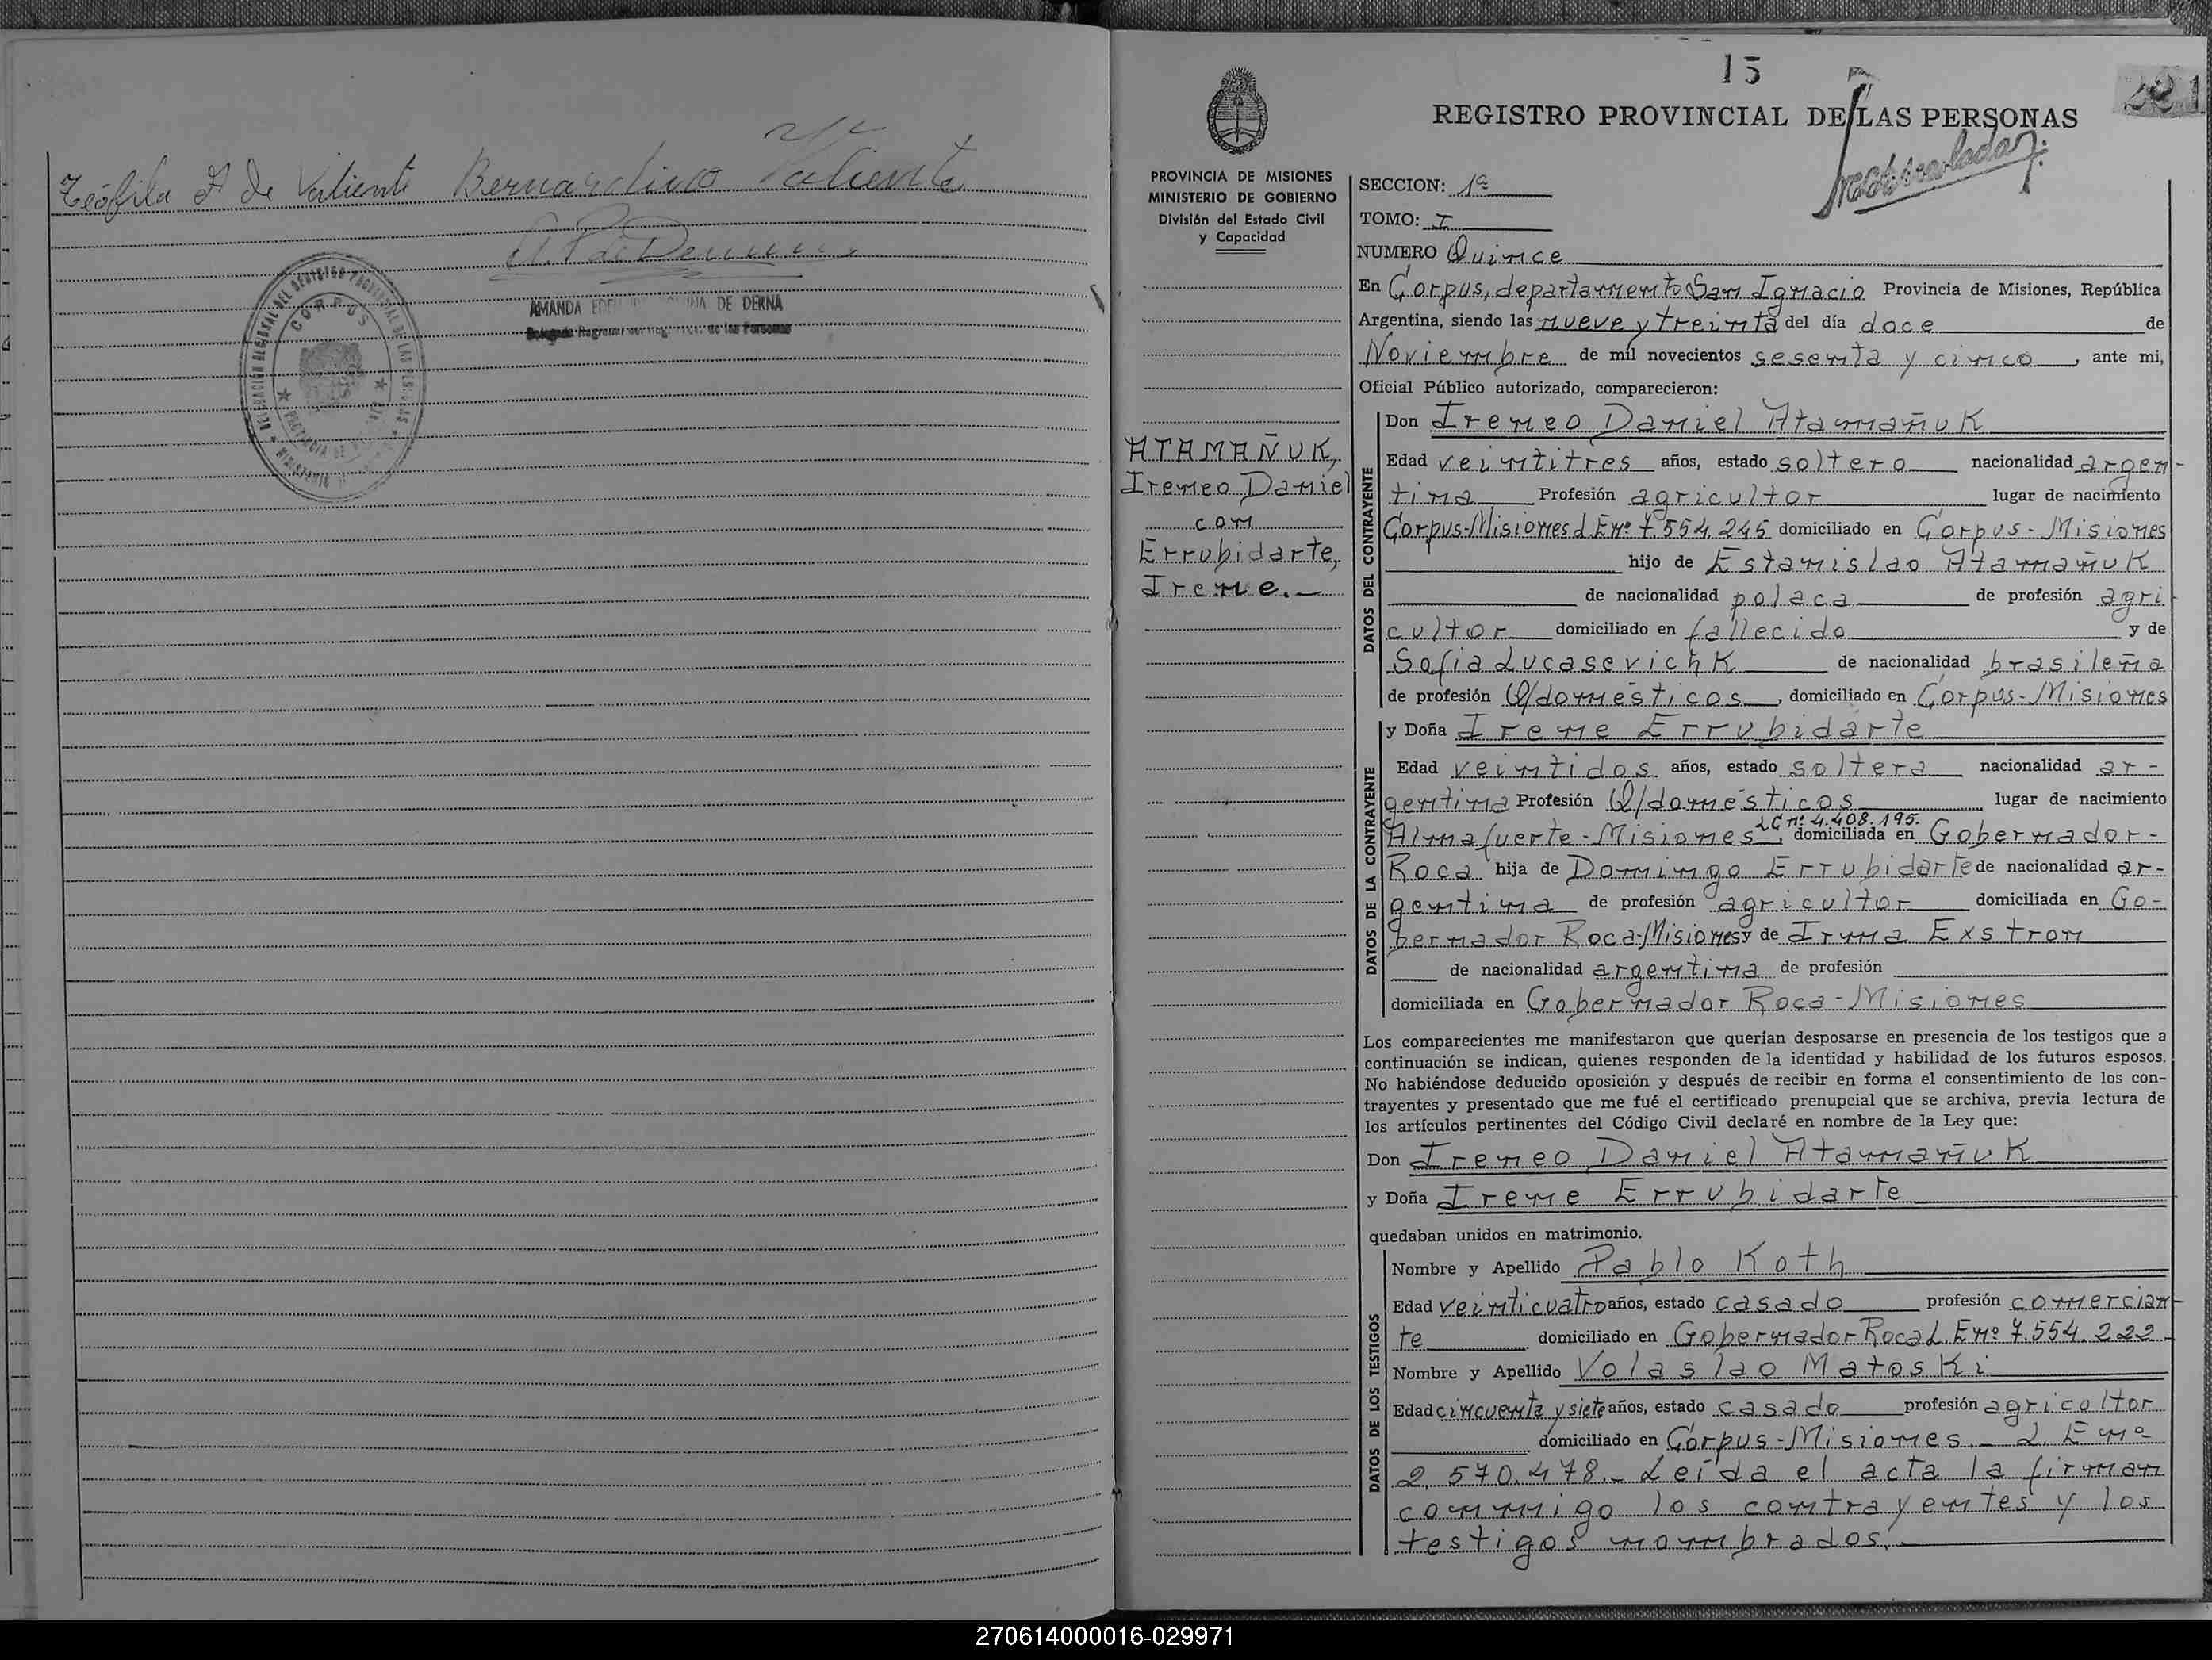 Teófila A de Valiente Bernardino Valiente
AMANDA DE DERNA
CORPUS
15
221
REGISTRO PROVINCIAL DE LAS PERSONAS
PROVINCIA DE MISIONES
MINISTERIO DE GOBIERNO
División del Estado Civil
y Capacidad
SECCION: 1a
TOMO: I
NUMERO Quince
En Corpus, departamento San Ignacio Provincia de Misiones, República
Argentina, siendo las nueve y treinta del día doce de
Noviembre de mil novecientos sesenta y cinco, ante mi,
Oficial Público autorizado, comparecieron:
ATAMAÑUK,
Ireneo Daniel
con
Errubidarte,
Irene.-
DATOS DEL CONTRAYENTE
Don Ireneo Daniel Atamañuk
Edad veintitres años, estado soltero nacionalidad argen-
tina Profesión agricultor lugar de nacimiento
Corpus-Misiones L.E nº 7.554.245 domiciliado en Corpus-Misiones
hijo de Estanislao Atamañuk
de nacionalidad polaca de profesión agri
cultor domiciliado en fallecido y de
Sofia Lucasevichk de nacionalidad brasileña
de profesión Q/domésticos, domiciliado en Corpus-Misiones
DATOS DE LA CONTRAYENTE
y Doña Irene Errubidarte
Edad veintidos años, estado soltera nacionalidad ar-
gentina Profesión Q/domésticos lugar de nacimiento
Almafuerte-Misiones LC nº 4.408.195. domiciliada en Gobernador-
Roca hija de Domingo Errubidarte de nacionalidad ar-
gentina de profesión agricultor domiciliada en Go-
bernador Roca-Misiones y de Irma Exstron
de nacionalidad argentina de profesión
domiciliada en Gobernador Roca-Misiones
Los comparecientes me manifestaron que querían desposarse en presencia de los testigos que a
continuación se indican, quienes responden de la identidad y habilidad de los futuros esposos.
No habiéndose deducido oposición y después de recibir en forma el consentimiento de los con-
trayentes y presentado que me fué el certificado prenupcial que se archiva, previa lectura de
los artículos pertinentes del Código Civil declaré en nombre de la Ley que:
Don Ireneo Daniel Atamañuk
y Doña Irene Errubidarte
quedaban unidos en matrimonio.
DATOS DE LOS TESTIGOS
Nombre y Apellido Pablo Koth
Edad veinticuatro años, estado casado profesión comercian-
te domiciliado en Gobernador Roca L.E nº 7.554.222-
Nombre y Apellido Volaslao Matoski
Edad cincuenta y siete años, estado casado profesión agricultor
domiciliado en Corpus-Misiones.- L.E nº
2.570.478.- Leída el acta la firman
conmigo los contrayentes y los
testigos nombrados.-
270614000016-029971